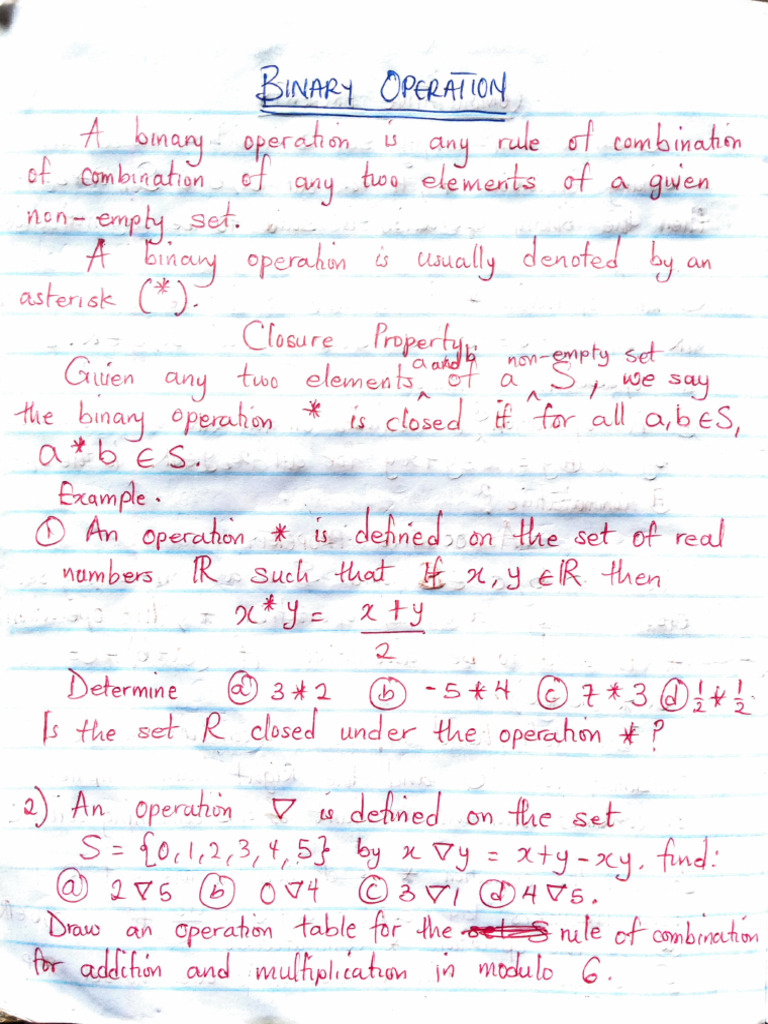 BINARY OPERATION
A binary operation is any rule of combination
of combination of any two elements of a given
non-empty set.
A binary operation is usually denoted by an
asterisk (*).
Closure Property.
a and b non-empty set
Given any two elements ^ of a ^ S, we say
the binary operation * is closed if for all a,b ∈ S,
a * b ∈ S.
Example.
① An operation * is defined on the set of real
numbers ℝ such that if x, y ∈ ℝ then
x * y = x + y
2
Determine ⓐ 3 * 2 ⓑ -5 * 4 ⓒ 7 * 3 ⓓ 1/2 * 1/2.
Is the set R closed under the operation *?
2) An operation ∇ is defined on the set
S = {0,1,2,3,4,5} by x ∇ y = x+y-xy. find:
ⓐ 2 ∇ 5 ⓑ 0 ∇ 4 ⓒ 3 ∇ 1 ⓓ 4 ∇ 5.
Draw an operation table for the rule of combination
for addition and multiplication in modulo 6.